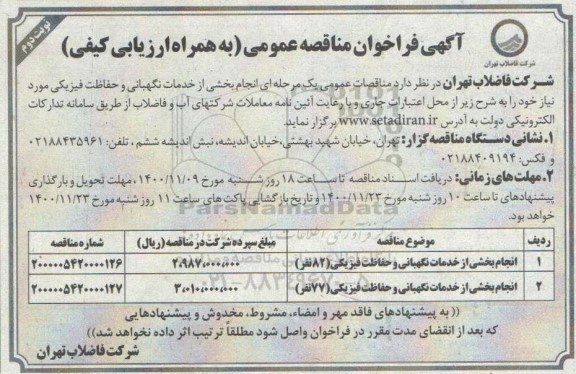 نوبت دوم
شرکت فاضلاب تهران
آگهی فراخوان مناقصه عمومی (به همراه ارزیابی کیفی)
شرکت فاضلاب تهران در نظر دارد مناقصات عمومی یک مرحله ای انجام بخشی از خدمات نگهبانی و حفاظت فیزیکی مورد
نیاز خود را به شرح زیر از محل اعتبارات جاری و با رعایت آئین نامه معاملات شرکتهای آب و فاضلاب از طریق سامانه تدارکات
الکترونیکی دولت به آدرس www.setadiran.ir برگزار نماید.
۱. نشانی دستگاه مناقصه گزار: تهران، خیابان شهید بهشتی، خیابان اندیشه، نبش اندیشه ششم، تلفن: ۰۲۱۸۸۴۳۵۹۶۱
و فکس: ۰۲۱۸۸۴۰۹۱۹۴
۲. مهلت های زمانی: دریافت اسناد مناقصه تا ساعت ۱۸ روز شنبه مورخ ۱۴۰۰/۱۱/۰۹، مهلت تحویل و بارگذاری
پیشنهادهای تا ساعت ۱۰ روز شنبه مورخ ۱۴۰۰/۱۱/۲۳ و تاریخ بازگشائی پاکت های ساعت ۱۱ روز شنبه مورخ ۱۴۰۰/۱۱/۲۳
خواهد بود.
ردیف موضوع مناقصه مبلغ سپرده شرکت در مناقصه (ریال) شماره مناقصه
۱ انجام بخشی از خدمات نگهبانی و حفاظت فیزیکی (۸۲ نفر) ۲.۹۸۷.۰۰۰.۰۰۰ ۲۰۰۰۰۰۵۴۲۰۰۰۰۱۲۶
۲ انجام بخشی از خدمات نگهبانی و حفاظت فیزیکی (۷۷ نفر) ۳.۰۱۰.۰۰۰.۰۰۰ ۲۰۰۰۰۰۵۴۲۰۰۰۰۱۲۷
(( به پیشنهادهای فاقد مهر و امضاء، مشروط، مخدوش و پیشنهادهایی
که بعد از انقضای مدت مقرر در فراخوان واصل شود مطلقاً ترتیب اثر داده نخواهد شد))
شرکت فاضلاب تهران
ParsNamadData